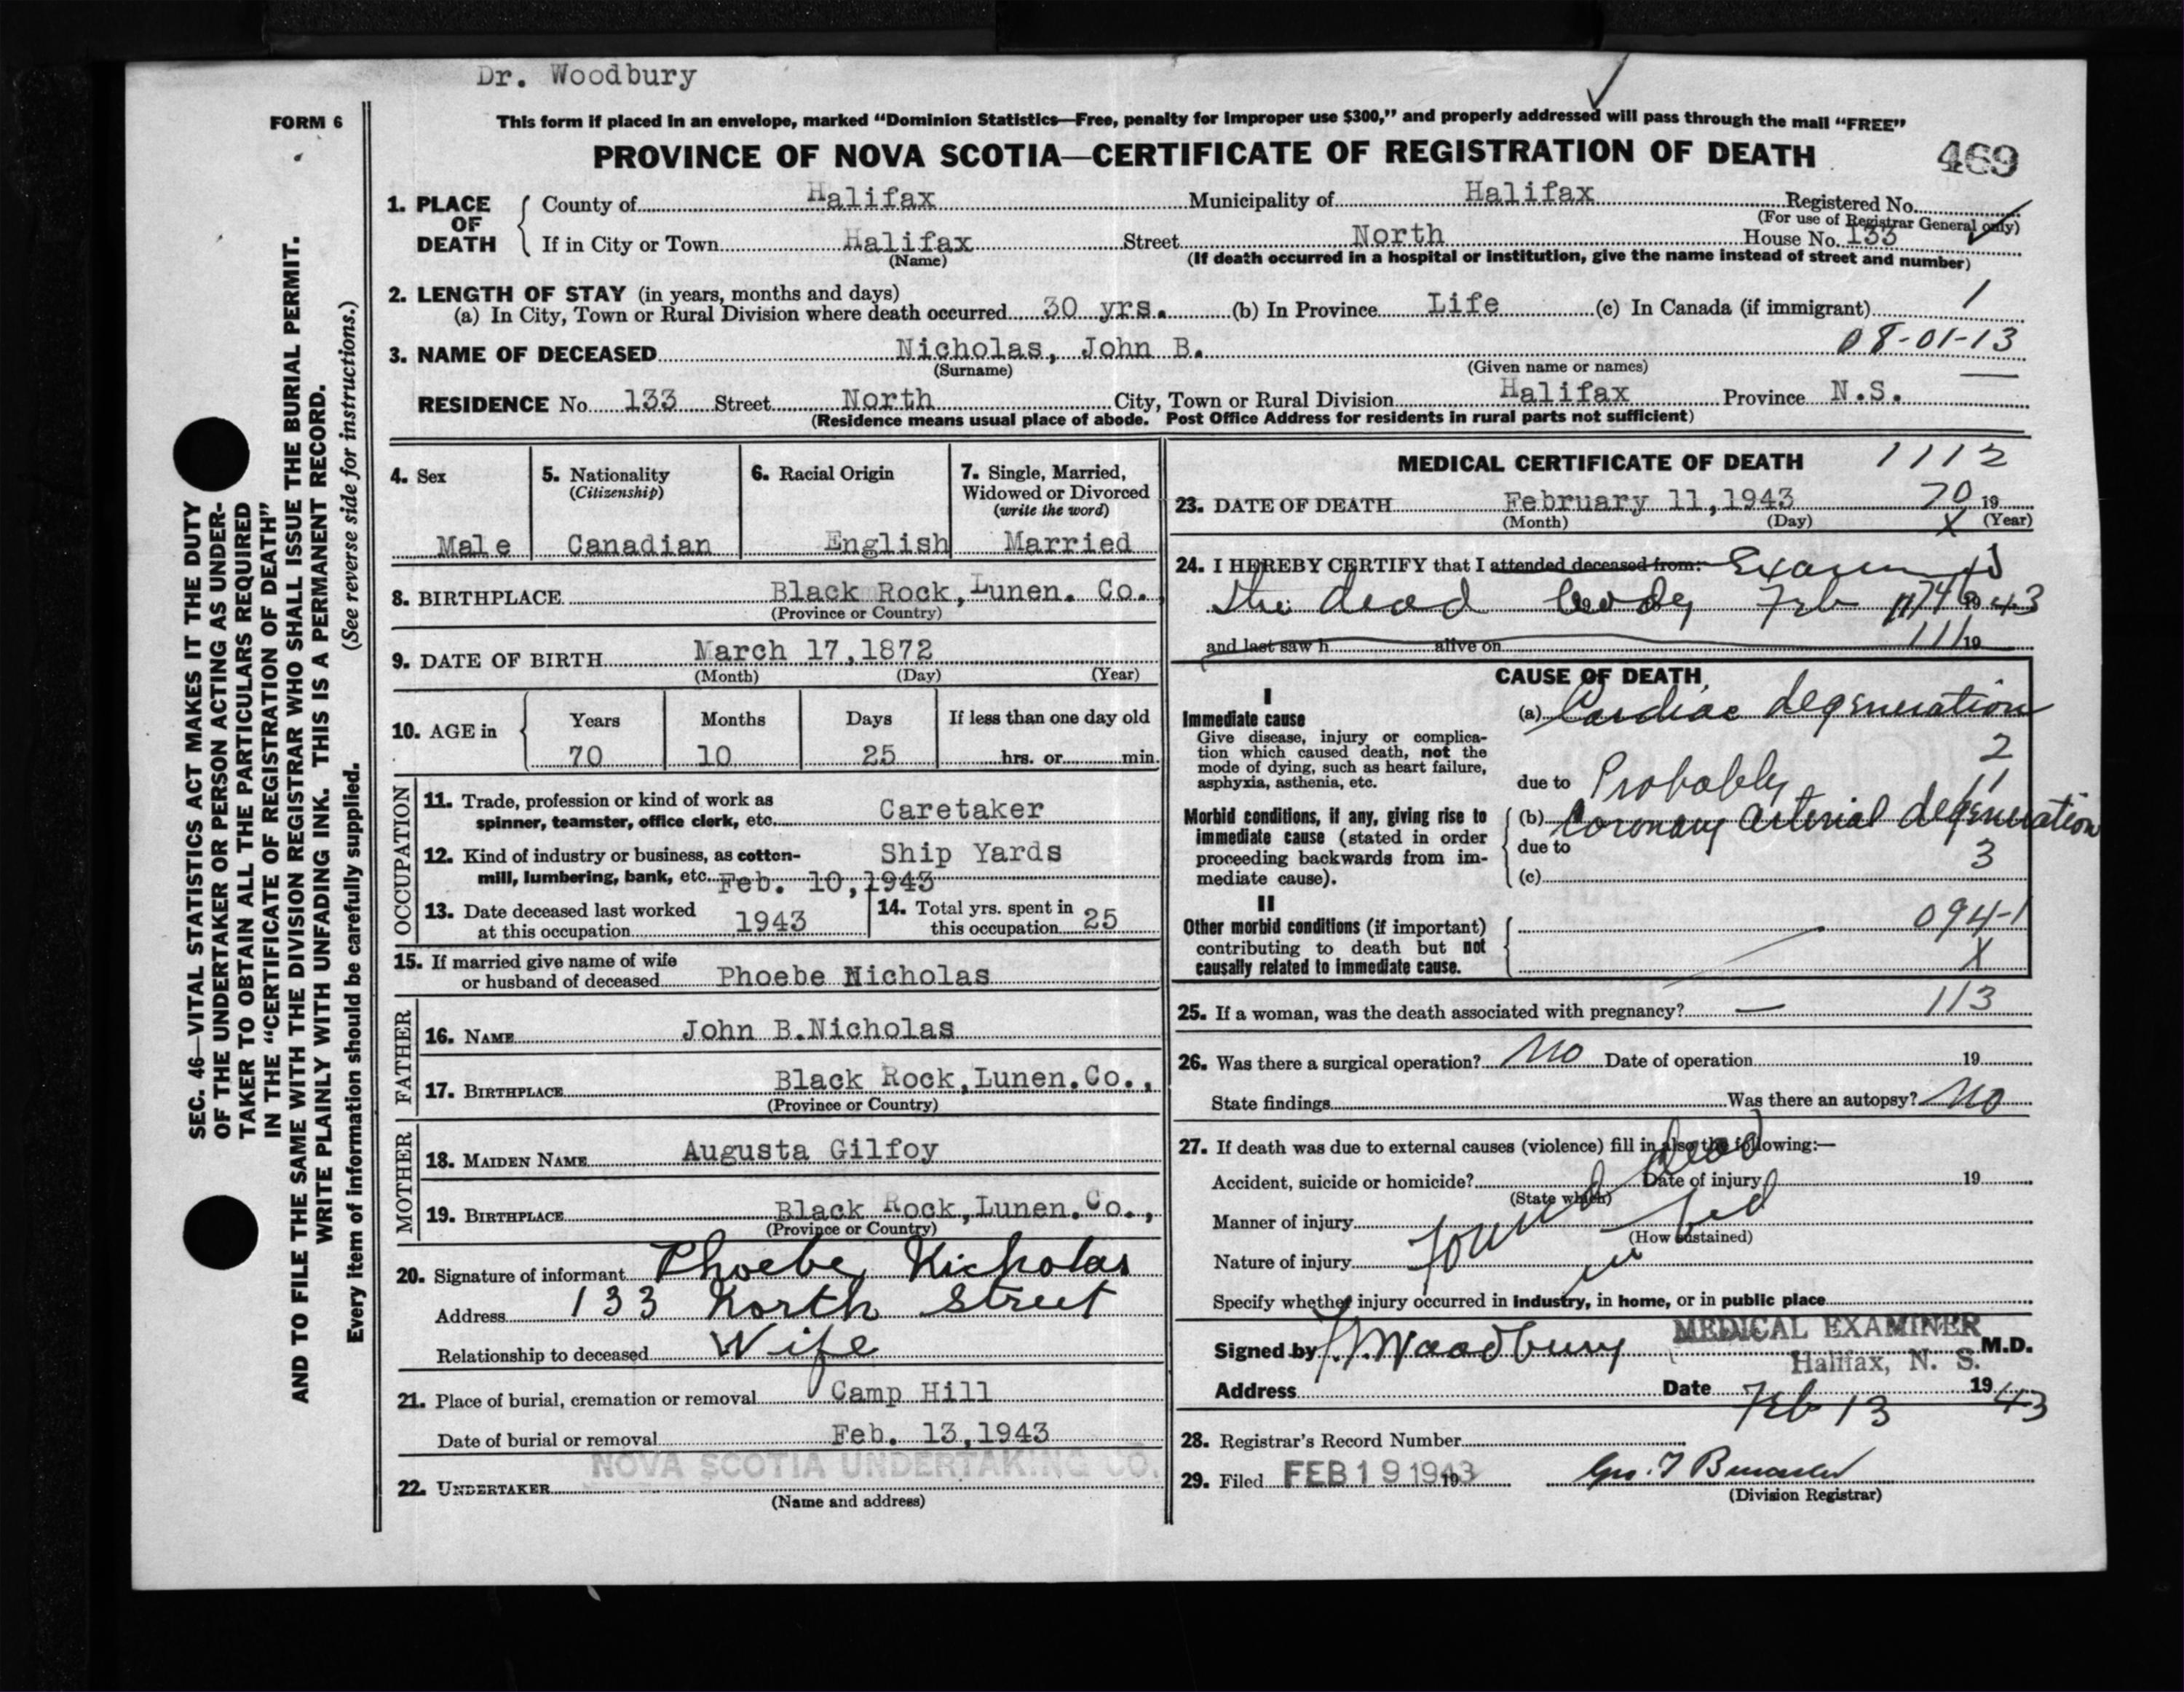 Dr. Woodbury
FORM 6
This form if placed in an envelope, marked "Dominion Statistics—Free, penalty for improper use $300," and properly addressed will pass through the mail "FREE"
PROVINCE OF NOVA SCOTIA—CERTIFICATE OF REGISTRATION OF DEATH
469
1. PLACE OF DEATH
County of Halifax Municipality of Halifax Registered No.
(For use of Registrar General only)
If in City or Town Halifax Street North House No. 133
(Name) (If death occurred in a hospital or institution, give the name instead of street and number)
2. LENGTH OF STAY (in years, months and days)
(a) In City, Town or Rural Division where death occurred 30 yrs. (b) In Province Life (c) In Canada (if immigrant) 1
3. NAME OF DECEASED Nicholas, John B. 08-01-13
(Surname) (Given name or names)
RESIDENCE No. 133 Street North City, Town or Rural Division Halifax Province N.S.
(Residence means usual place of abode. Post Office Address for residents in rural parts not sufficient)
4. Sex
Male
5. Nationality
(Citizenship)
Canadian
6. Racial Origin
English
7. Single, Married,
Widowed or Divorced
(write the word)
Married
8. BIRTHPLACE Black Rock, Lunen. Co.,
(Province or Country)
9. DATE OF BIRTH March 17,1872
(Month) (Day) (Year)
10. AGE in
Years Months Days If less than one day old
70 10 25 hrs. or min.
OCCUPATION
11. Trade, profession or kind of work as
spinner, teamster, office clerk, etc. Caretaker
12. Kind of industry or business, as cotton-
mill, lumbering, bank, etc. Ship Yards
Feb. 10,1943
13. Date deceased last worked
at this occupation 1943
14. Total yrs. spent in
this occupation 25
15. If married give name of wife
or husband of deceased Phoebe Nicholas
FATHER
16. NAME John B.Nicholas
17. BIRTHPLACE Black Rock, Lunen.Co.,
(Province or Country)
MOTHER
18. MAIDEN NAME Augusta Gilfoy
19. BIRTHPLACE Black Rock, Lunen.Co.,
(Province or Country)
20. Signature of informant Phoebe Nicholas
Address 133 North Street
Relationship to deceased Wife
21. Place of burial, cremation or removal Camp Hill
Date of burial or removal Feb. 13,1943
22. UNDERTAKER NOVA SCOTIA UNDERTAKING CO.
(Name and address)
MEDICAL CERTIFICATE OF DEATH 1112
23. DATE OF DEATH February 11,1943 70 19
(Month) (Day) X (Year)
24. I HEREBY CERTIFY that I attended deceased from: Examined
the dead body Feb 11 1943
746
and last saw h alive on 111 19
CAUSE OF DEATH
I
Immediate cause
Give disease, injury or complica-
tion which caused death, not the
mode of dying, such as heart failure,
asphyxia, asthenia, etc.
(a) Cardiac degeneration
2
due to Probably
11
Morbid conditions, if any, giving rise to
immediate cause (stated in order
proceeding backwards from im-
mediate cause).
(b) Coronary arterial degeneration
due to
3
(c)
II
Other morbid conditions (if important)
contributing to death but not
causally related to immediate cause.
094-1
X
25. If a woman, was the death associated with pregnancy? — 113
26. Was there a surgical operation? No Date of operation 19
State findings Was there an autopsy? No
27. If death was due to external causes (violence) fill in also the following:—
Accident, suicide or homicide? Date of injury 19
(State which)
Manner of injury
(How sustained)
Nature of injury
found dead
in bed
Specify whether injury occurred in industry, in home, or in public place
Signed by Woodbury M.D.
MEDICAL EXAMINER
Halifax, N. S.
Address Date Feb 13 1943
28. Registrar's Record Number
29. Filed FEB 19 1943 19
(Division Registrar)
SEC. 46—VITAL STATISTICS ACT MAKES IT THE DUTY
OF THE UNDERTAKER OR PERSON ACTING AS UNDER-
TAKER TO OBTAIN ALL THE PARTICULARS REQUIRED
IN THE "CERTIFICATE OF REGISTRATION OF DEATH"
AND TO FILE THE SAME WITH THE DIVISION REGISTRAR WHO SHALL ISSUE THE BURIAL PERMIT.
WRITE PLAINLY WITH UNFADING INK. THIS IS A PERMANENT RECORD.
Every item of information should be carefully supplied. (See reverse side for instructions.)